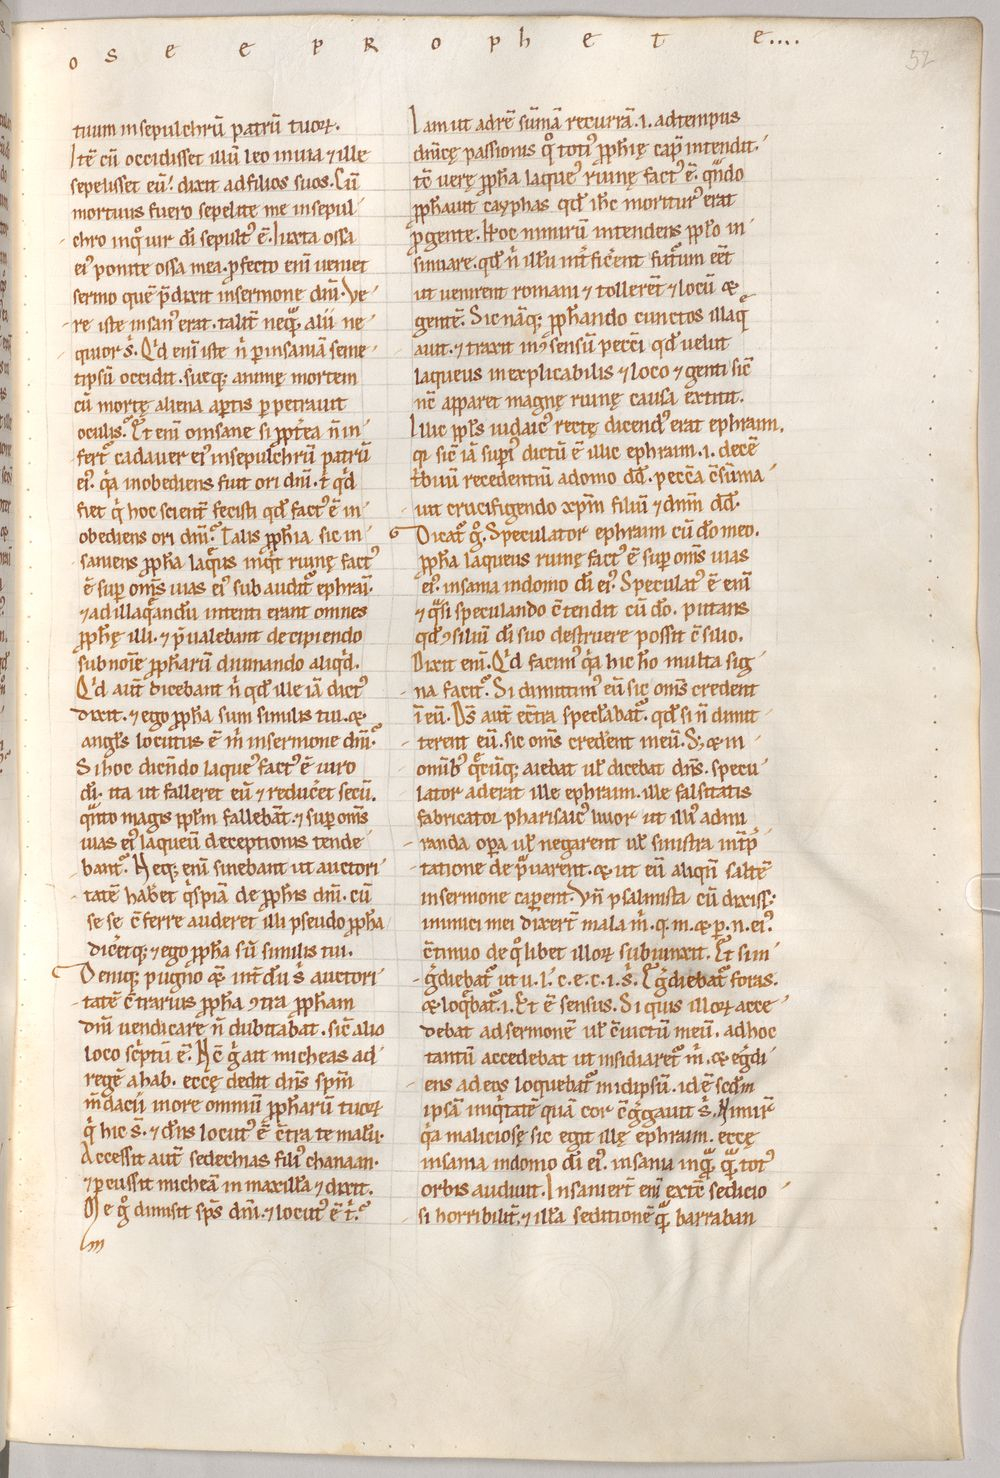 o s e e p R o p h e t e....
52
tuum in sepulchrū patrū tuoꝝ.
Itē cū occidisset illū leo in uia ⁊ ille
sepelisset eū. dixit ad filios suos. Cū
mortuus fuero sepelite me in sepul
chro in qͦ uir dī sepultꝰ ē. Iuxta ossa
eiꝰ ponite ossa mea. ꝓfecto enī ueniet
sermo quē p̄dixit in sermone dnī. Ve
re iste insanꝰ erat. talit̄ neqͣꝫ alii ne
quior s̄. Qͥd enī iste n̄ ꝑ insaniā seme
tipsū occidit. sueqꝫ animę mortem
cū mortę aliena aꝑtis ꝑpetrauit
oculis. Et enī o insane si ꝓpt̄ea n̄ in
fert᷑ cadauer eiꝰ in sepulchrū patrū
eiꝰ. qͥa inobediens fuit ori dnī. t̄ qͥd
fiet qͥ hoc scient̄ fecisti qd̄ factꝰ ē in
obediens ori dnī. Talis ꝓph̄ia sic in
saniens ꝓph̄a laqͥus inqͥt ruinę factꝰ
ē suꝑ om̄s uias eiꝰ sub audit᷑ ephraī.
⁊ ad illaqͣandū intenti erant omnes
ꝓph̄ę illi. ⁊ p̄ualebant decipiendo
sub noīe ꝓph̄arū diuinando aliqͥd.
Qͥd aut̄ dicebant n̄ qd̄ ille iā dictꝰ
dixit. ⁊ ego ꝓph̄a sum similis tui. &
angłs locutus ē m̄ in sermone dnī.
Si hoc dicn̄do laqueꝰ factꝰ ē uiro
dī. ita ut falleret eū ⁊ reduc̄et secū.
qͣnto magis ppłm fallebāt. ⁊ suꝑ om̄s
uias eiꝰ laqueū deceptionis tende
bant. Neqꝫ enī sinebant ut auctori
tatē hab̄et qͥspiā de ꝓph̄is dnī. cū
se se c̄ferre auderet illi pseudo ꝓph̄a
dic̄etqꝫ ⁊ ego ꝓph̄a sū similis tui.
Deniqꝫ pugno & int̄dū s̄ auctori
tatē c̄trarius ꝓph̄a ꝯtra ꝓph̄am
dnī uendicare n̄ dubitabat. sic̄ alio
loco sc̄ptū ē. Hc̄ gͥ ait micheas ad
regē ahab. eccę dedit dn̄s spm̄
m̄dacii in ore omniū ꝓph̄arū tuoꝝ
qͥ hic s̄. ⁊ dn̄s locutꝰ ē c̄tra te malū.
Accessit aut̄ sedechias filiꝰ chanaan.
⁊ ꝑcussit micheā in maxillā ⁊ dixit.
Me gͦ dimisit sp̄s dnī. ⁊ locutꝰ ē t̄.
Iam ut ad rē sūmā recurrā. i. ad tempus
dn̄icę passionis qͦ totiꝰ ꝓph̄ię cap̄ intendit.
tē uerę ꝓph̄a laqueꝰ ruinę factꝰ ē. qͣndo
ꝓph̄auit cayphas qd̄ ih̄c moriturꝰ erat
ꝓ gente. Hoc nimirū intendens ppło in
sinuare. qd̄ n̄ illū int̄fic̄ent fut᷑um eēt
ut uenirent romani ⁊ tollerēt ⁊ locū &
gentē. Sic nāqꝫ ꝓph̄ando cunctos illaqͣ
auit. ⁊ traxit in hͦ sensū pecc̄i qd̄ uelut
laqueus inexplicabilis ⁊ loco ⁊ genti sic̄
nc̄ apparet magnę ruinę causa extitit.
Illic ppłs iudaicꝰ rectę dicendꝰ erat ephraim.
qͥ sic̄ iā suꝑiꝰ dictū ē illic ephraim. i. decē
t̄buū recedentiū a domo dd̄. pecc̄a c̄sūma
uit crucifigendo xp̄m filiū ⁊ dnm̄ dd̄.
Dicat᷑ gͦ. Speculator ephraim cū dō meo.
ꝓph̄a laqueus ruinę factꝰ ē suꝑ om̄s uias
eiꝰ. insania in domo dī eiꝰ. Speculatꝰ ē enī
⁊ qͣsi speculando c̄tendit cū dō. putans
qd̄ ꝯsiliū dī suo destruere possit c̄silio.
Dixit enī. Qͥd facimꝰ qͥa hic hō multa sig
na facit. Si dimittimꝰ eū sic om̄s credent
ī eū. Ds̄ aut̄ ec̄tra specłabat᷑. qd̄ si n̄ dimit
terent eū. sic om̄s credent in eū. Sꝫ & in
omībꝰ qͤcūqꝫ aiebat ut̄ dicebat dn̄s. specu
lator aderat ille ephraim. ille falsitatis
fabricator pharisaicꝰ liuor ut illiꝰ admi
randa oꝑa uł negarent uł sinistra int̄p̄
tatione dep̄uarent. & ut eū aliqn̄ saltē
in sermone caꝑent. Vn̄ psalmista cū dixisꝫ
inimici mei dixert̄ mala m̄. q. m. & ꝑ. n. eiꝰ.
c̄tinuo de qͦlibet illoꝝ subiunxit. Et si in
gͬdiebat᷑ ut u. l. c. e. c. i. s̄. Egͬdiebat᷑ foras.
& loqͤbat᷑. i. Et ē sensus. Si quis illoꝝ acce
debat ad sermonē uł c̄uictū meū. ad hoc
tantū accedebat ut insidiaret᷑ m̄. & egͬdi
ens ad eos loquebat᷑ in idipsū. id ē scd̄m
ipsā iniqͥtatē quā cor c̄gͬgauit s̄. Nimir̄
qͥa maliciosę sic egit illę ephraim. eccę
insania in domo dī eiꝰ. insania inqͣꝫ qͣꝫ totꝰ
orbis audiuit. Insaniert̄ enī extē sedicio
si horribilit̄. ⁊ illā seditionē qͣꝫ barraban